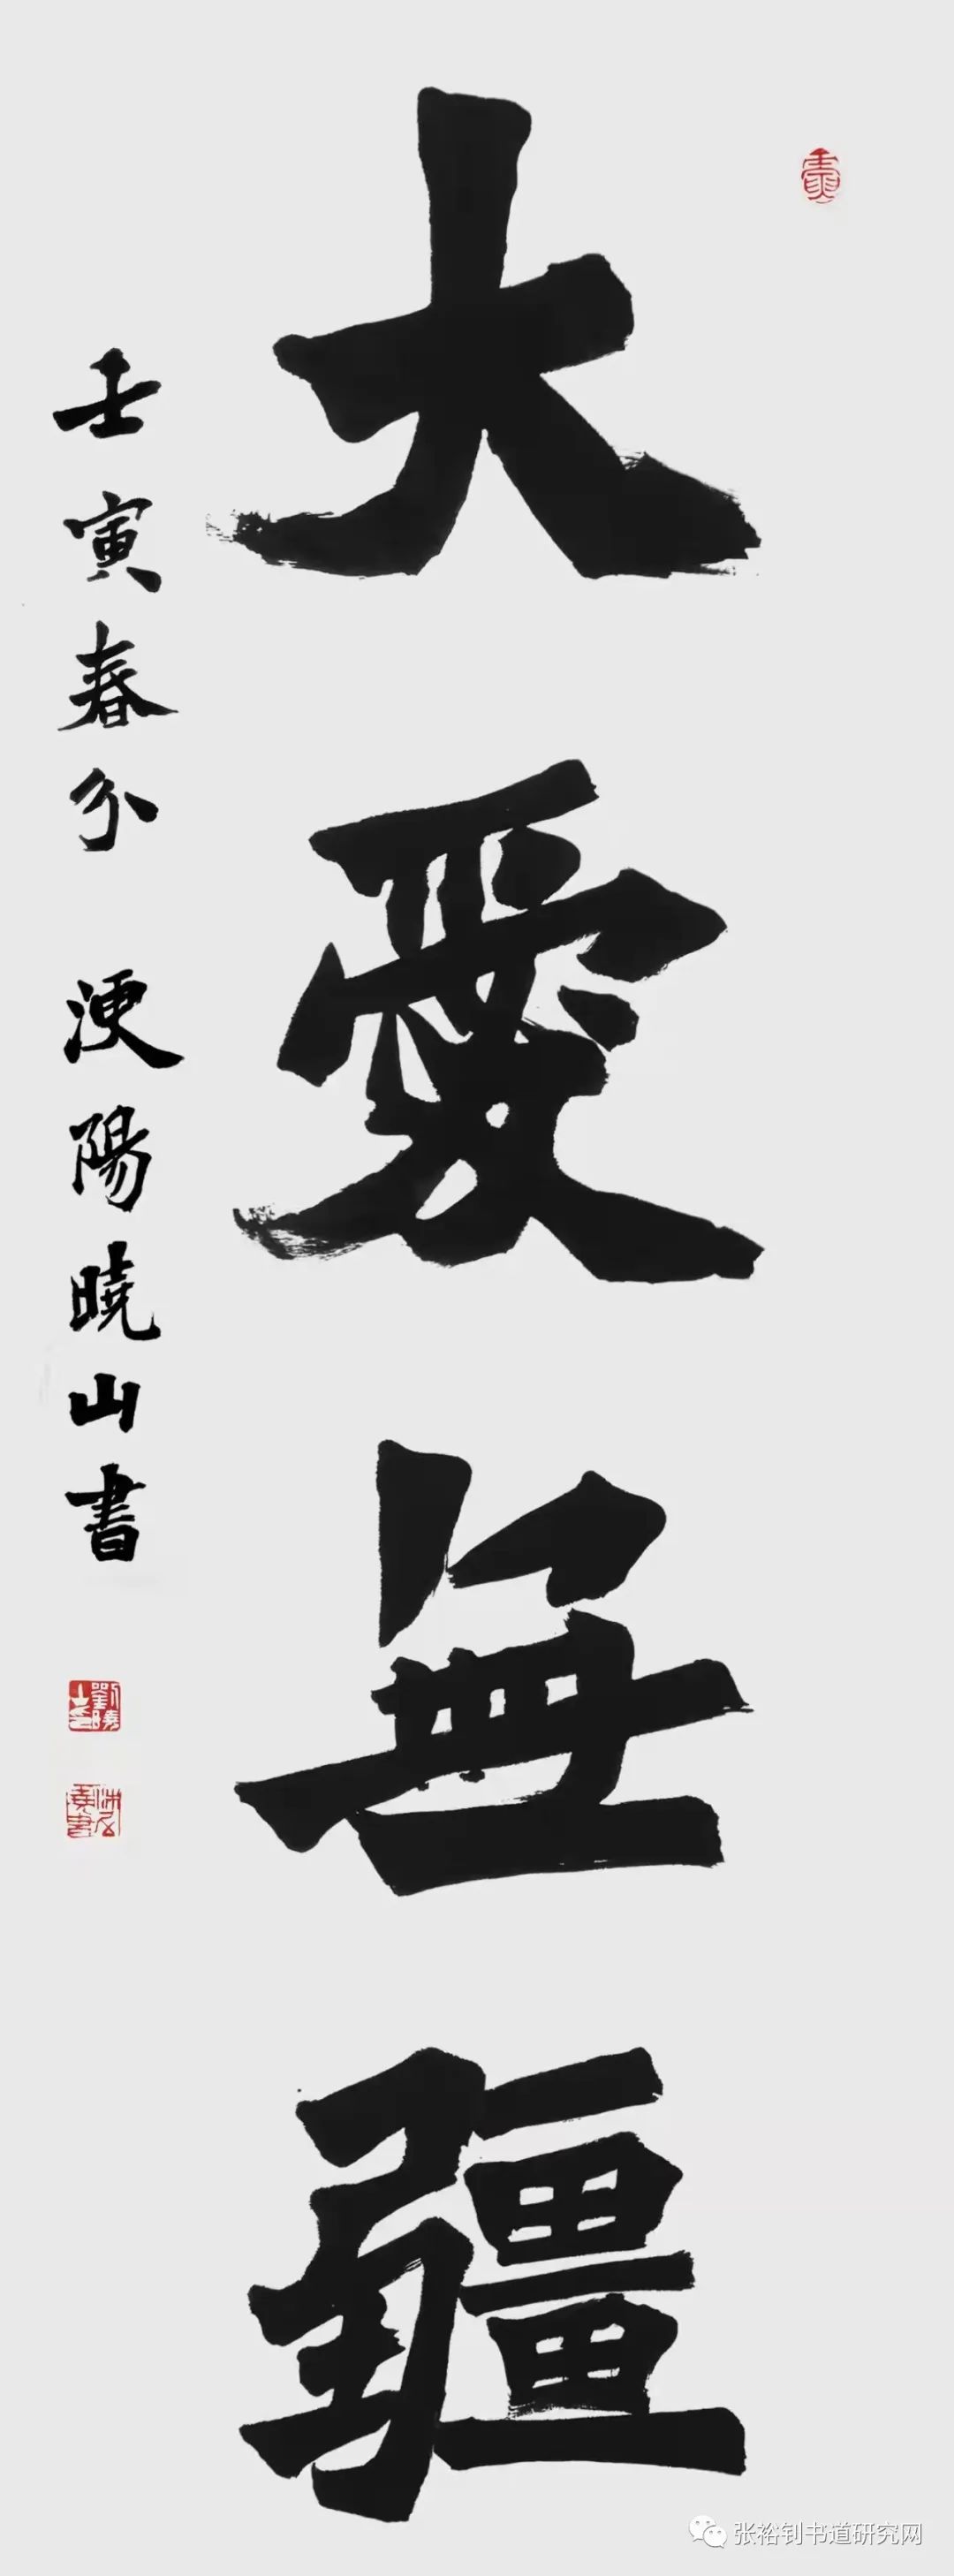 大愛無疆
壬寅春分 浭陽曉山書
劉曉山
张裕钊书道研究网